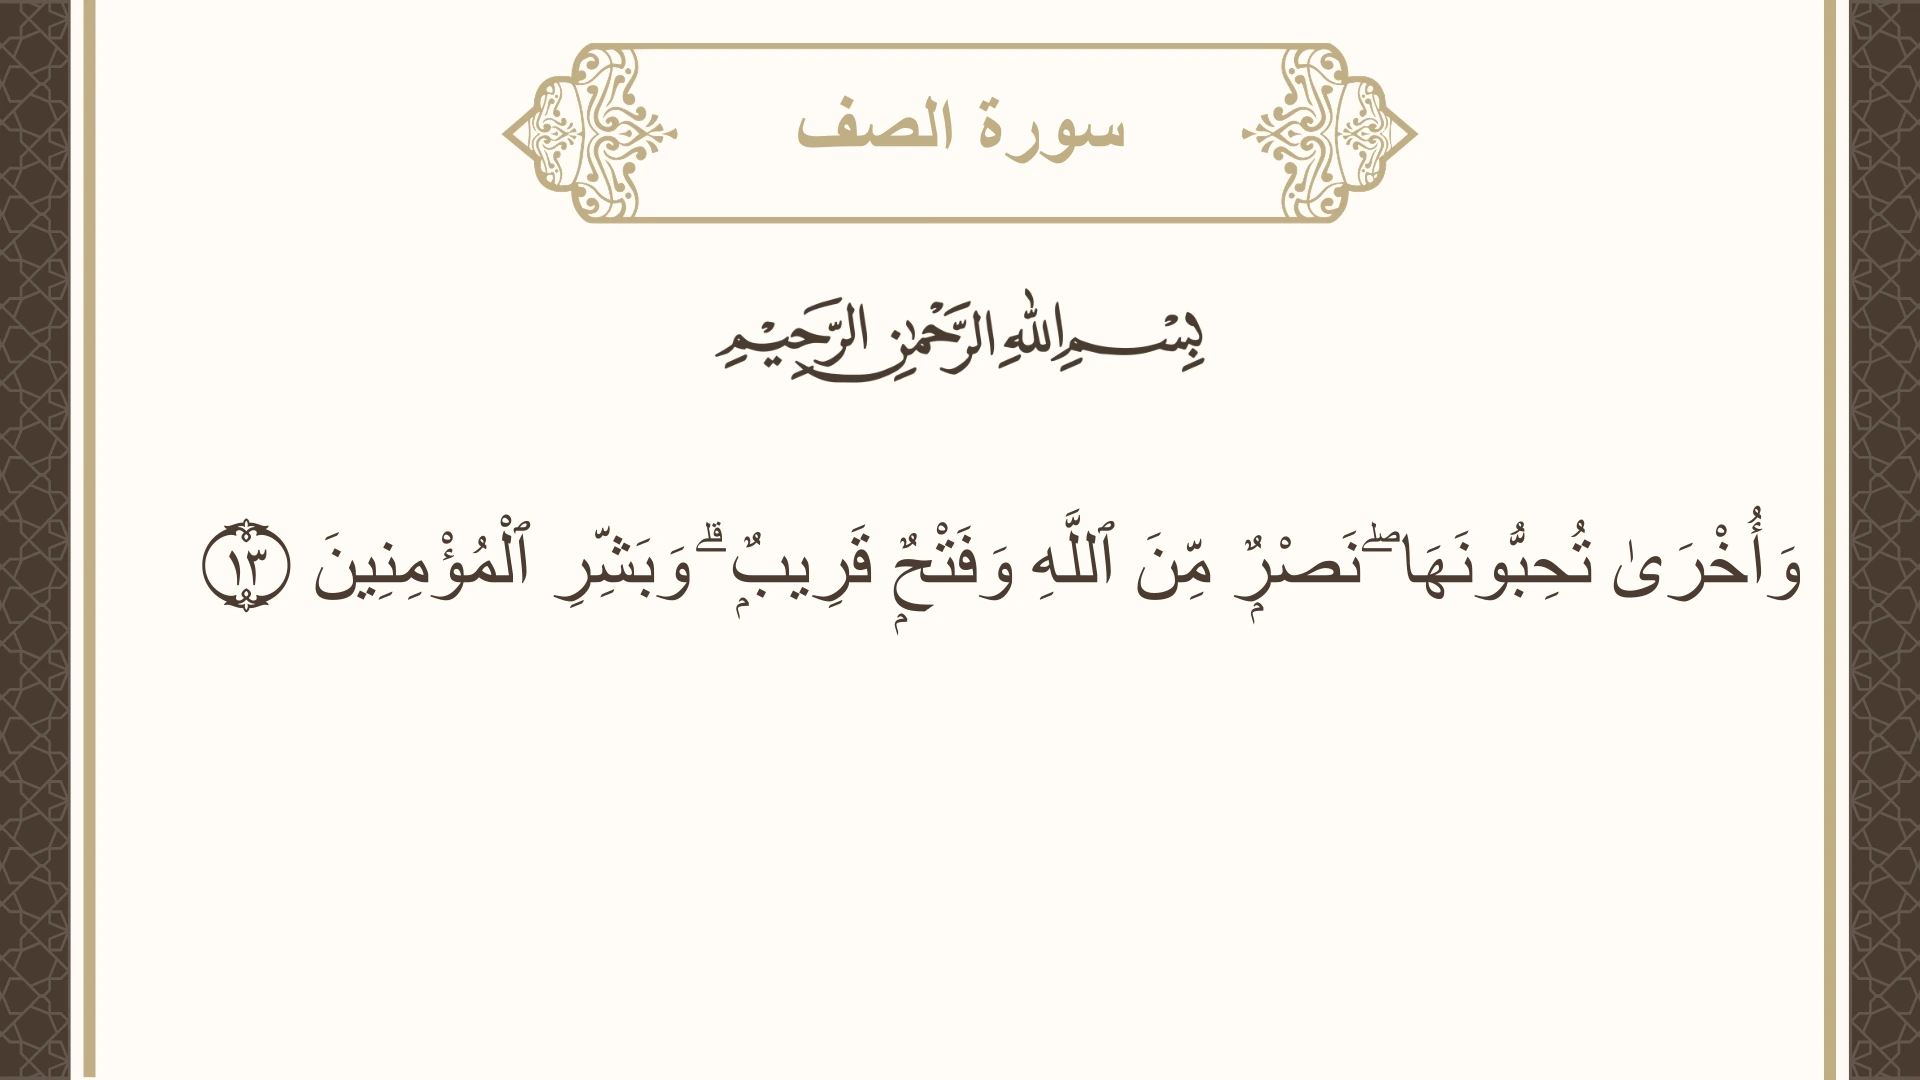 سورة الصف
بِسْمِ اللهِ الرَّحْمٰنِ الرَّحِيْمِ
وَأُخْرَىٰ تُحِبُّونَهَا ۖ نَصْرٌۭ مِّنَ ٱللَّهِ وَفَتْحٌۭ قَرِيبٌۭ ۗ وَبَشِّرِ ٱلْمُؤْمِنِينَ ١٣